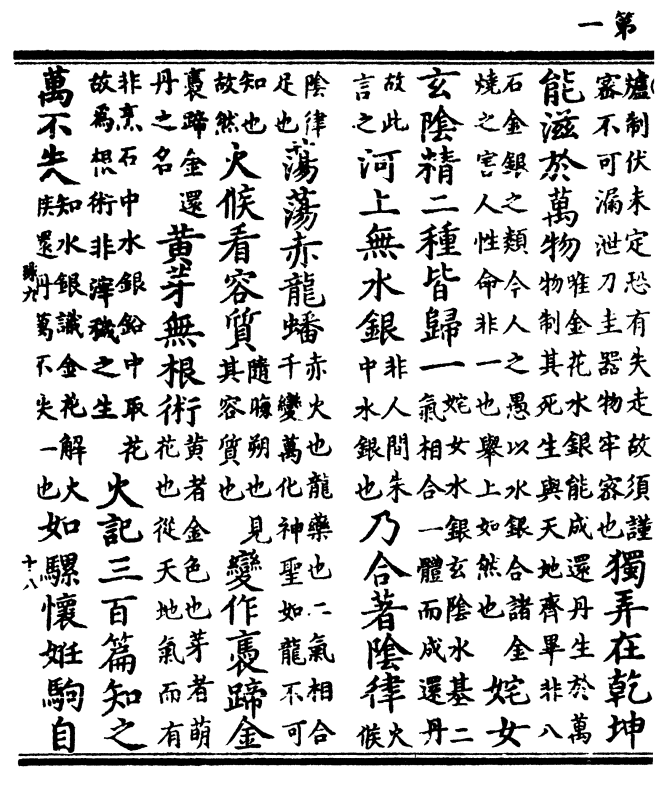 第一
爐制伏未定恐有失走故須謹
密不可漏泄刀圭器物牢密也
獨弄在乾坤
能滋於萬物
唯金花水銀能成還丹生於萬
物制其死生與天地齊畢非八
石金銀之類今人之愚以水銀合諸金
燒之害人性命非一也舉上如然也
姹女
玄陰精二種皆歸一
姹女水銀玄陰水基二
氣相合一體而成還丹
故此
言之
河上無水銀
非人間朱
中水銀也
乃合著陰律
火
候
陰律
足也
蕩蕩赤龍蟠
赤火也龍藥也二氣相合
千變萬化神聖如龍不可
知也
故然
火候看容質
隨晦朔也
其容質也
見變作褭蹄金
褭蹄金還
丹之名
黃芽無根術
黃者金色也芽者萌
花也從天地氣而有
非烹石中水銀鉛中取花
故爲根術非滓穢之生
火記三百篇知之
萬不失
知水銀識金花解火
候還丹萬不失一也
如騾懷妊駒自
十八